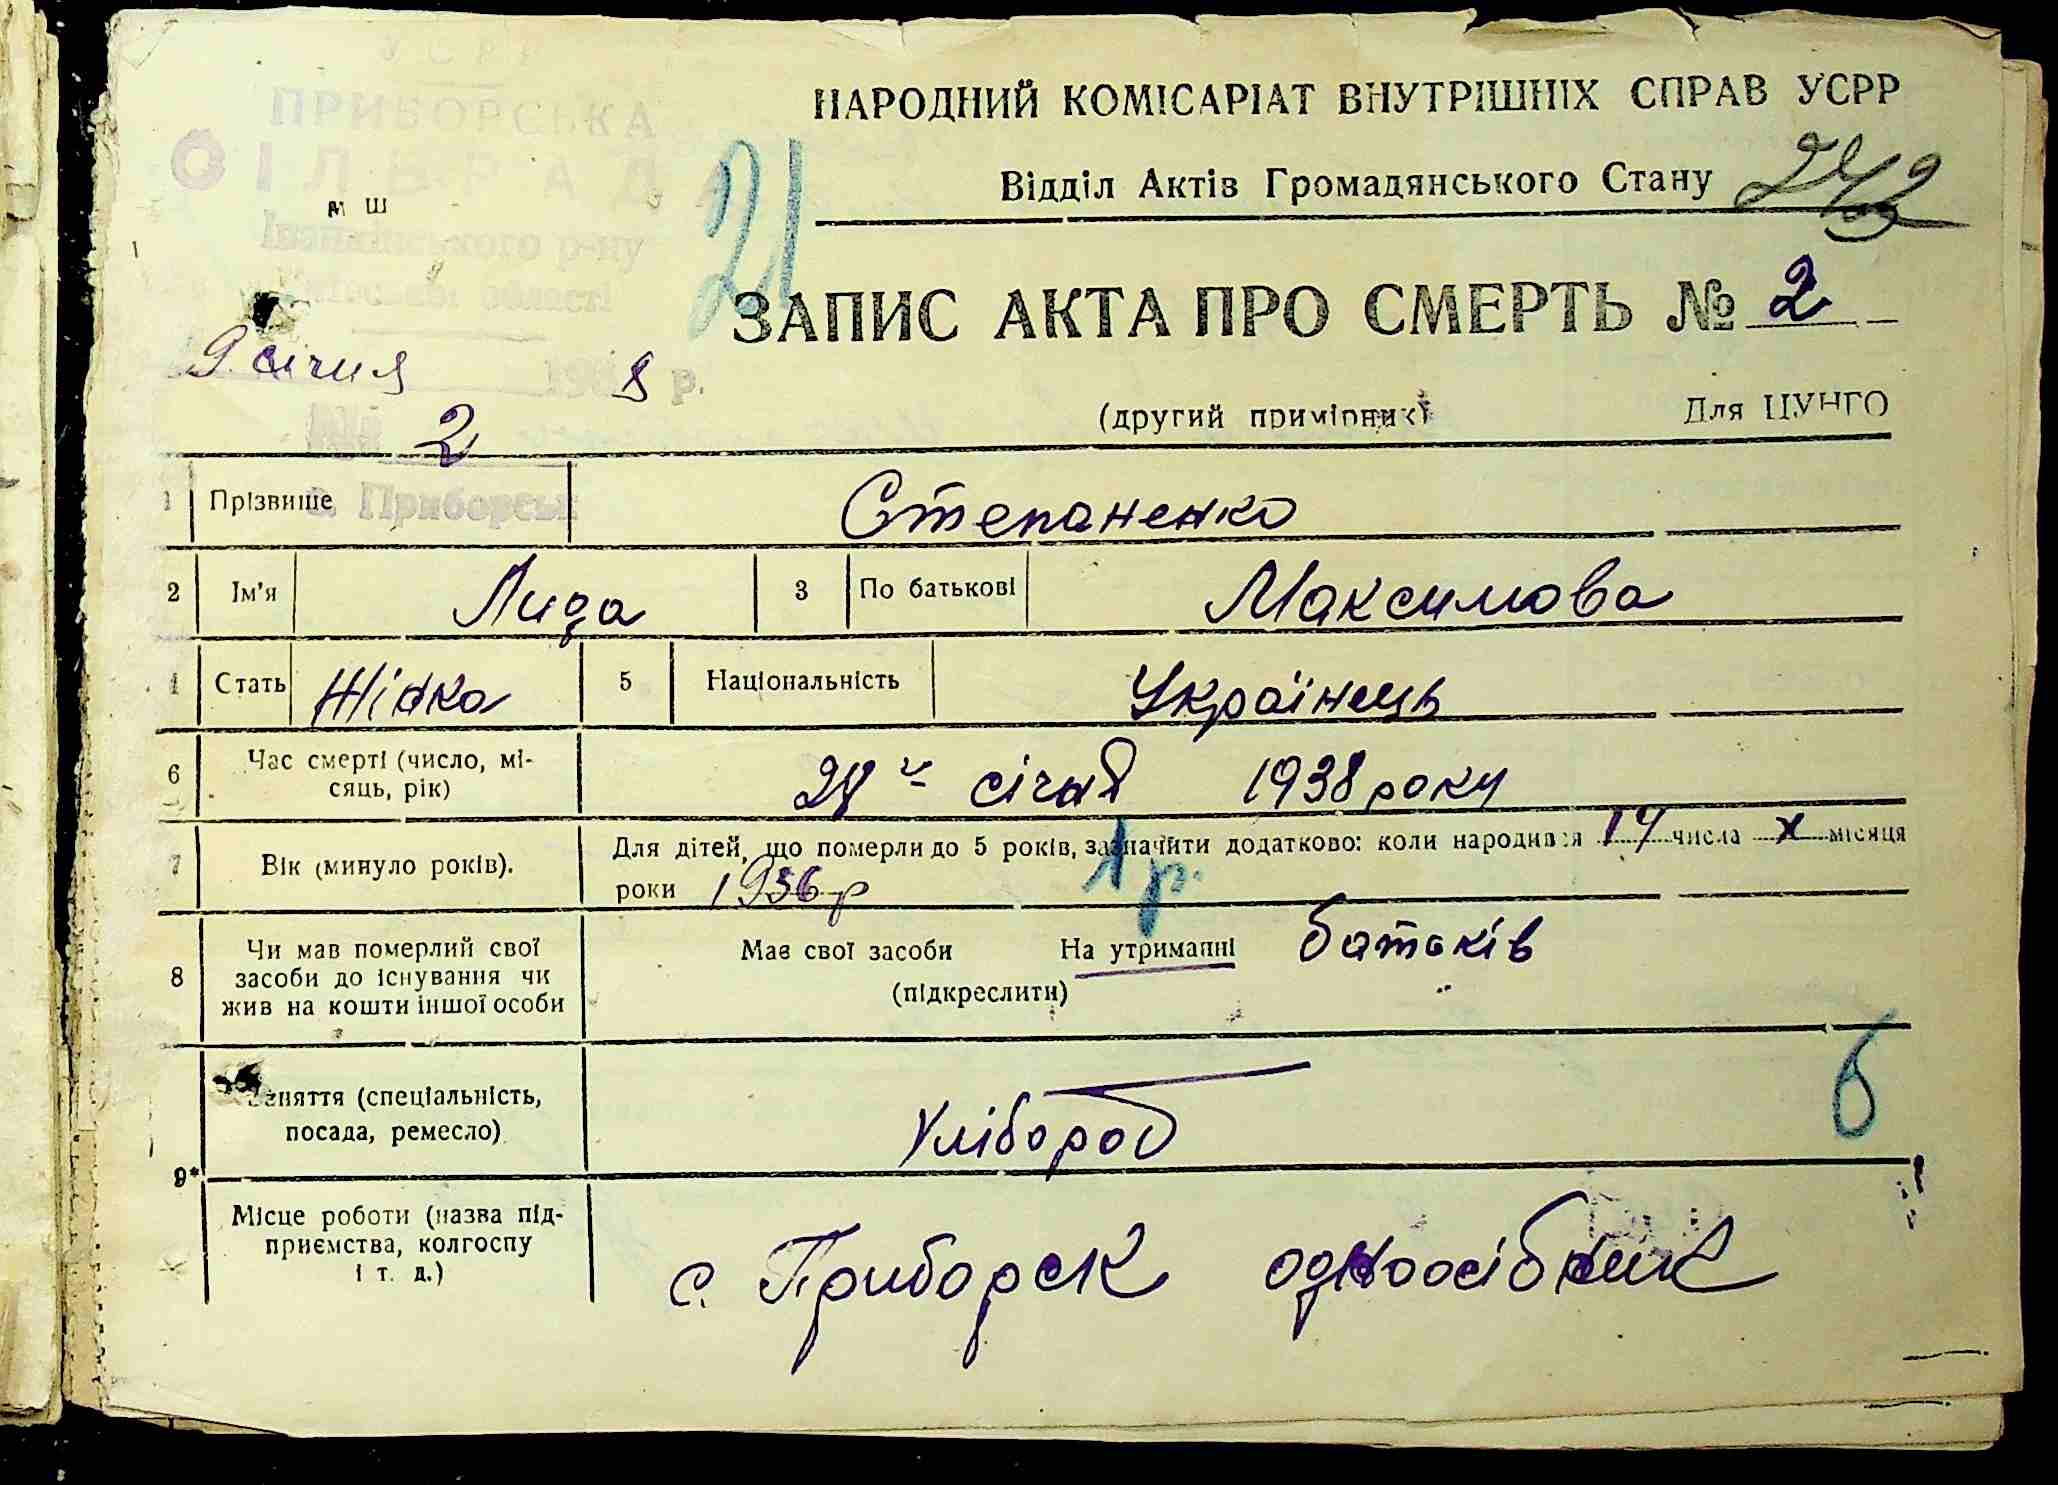 УСРР
ПРИБОРСЬКА
СІЛЬРАДА
м ш
Іванківського р-ну
області
9 січня 193 8 р.
№ 2
с. Приборськ
21
НАРОДНИЙ КОМІСАРІАТ ВНУТРІШНІХ СПРАВ УСРР
Відділ Актів Громадянського Стану
242
ЗАПИС АКТА ПРО СМЕРТЬ № 2
(другий примірник)
Для ЦУНГО
1 Прізвище Степаненко
2 Ім'я Лида 3 По батькові Максимова
4 Стать Жінка 5 Національність Українець
6 Час смерті (число, мі-
сяць, рік)
січня 1938 року
7 Вік (минуло років).
Для дітей, що померли до 5 років, зазначити додатково: коли народився 17 числа X місяця
роки 1936 р 1 р.
8 Чи мав померлий свої
засоби до існування чи
жив на кошти іншої особи
Має свої засоби На утриманні батьків
(підкреслити)
Заняття (спеціальність,
посада, ремесло)
Хлібороб
6
9*
Місце роботи (назва під-
приємства, колгоспу
і т. д.)
с. Приборск одноосібник